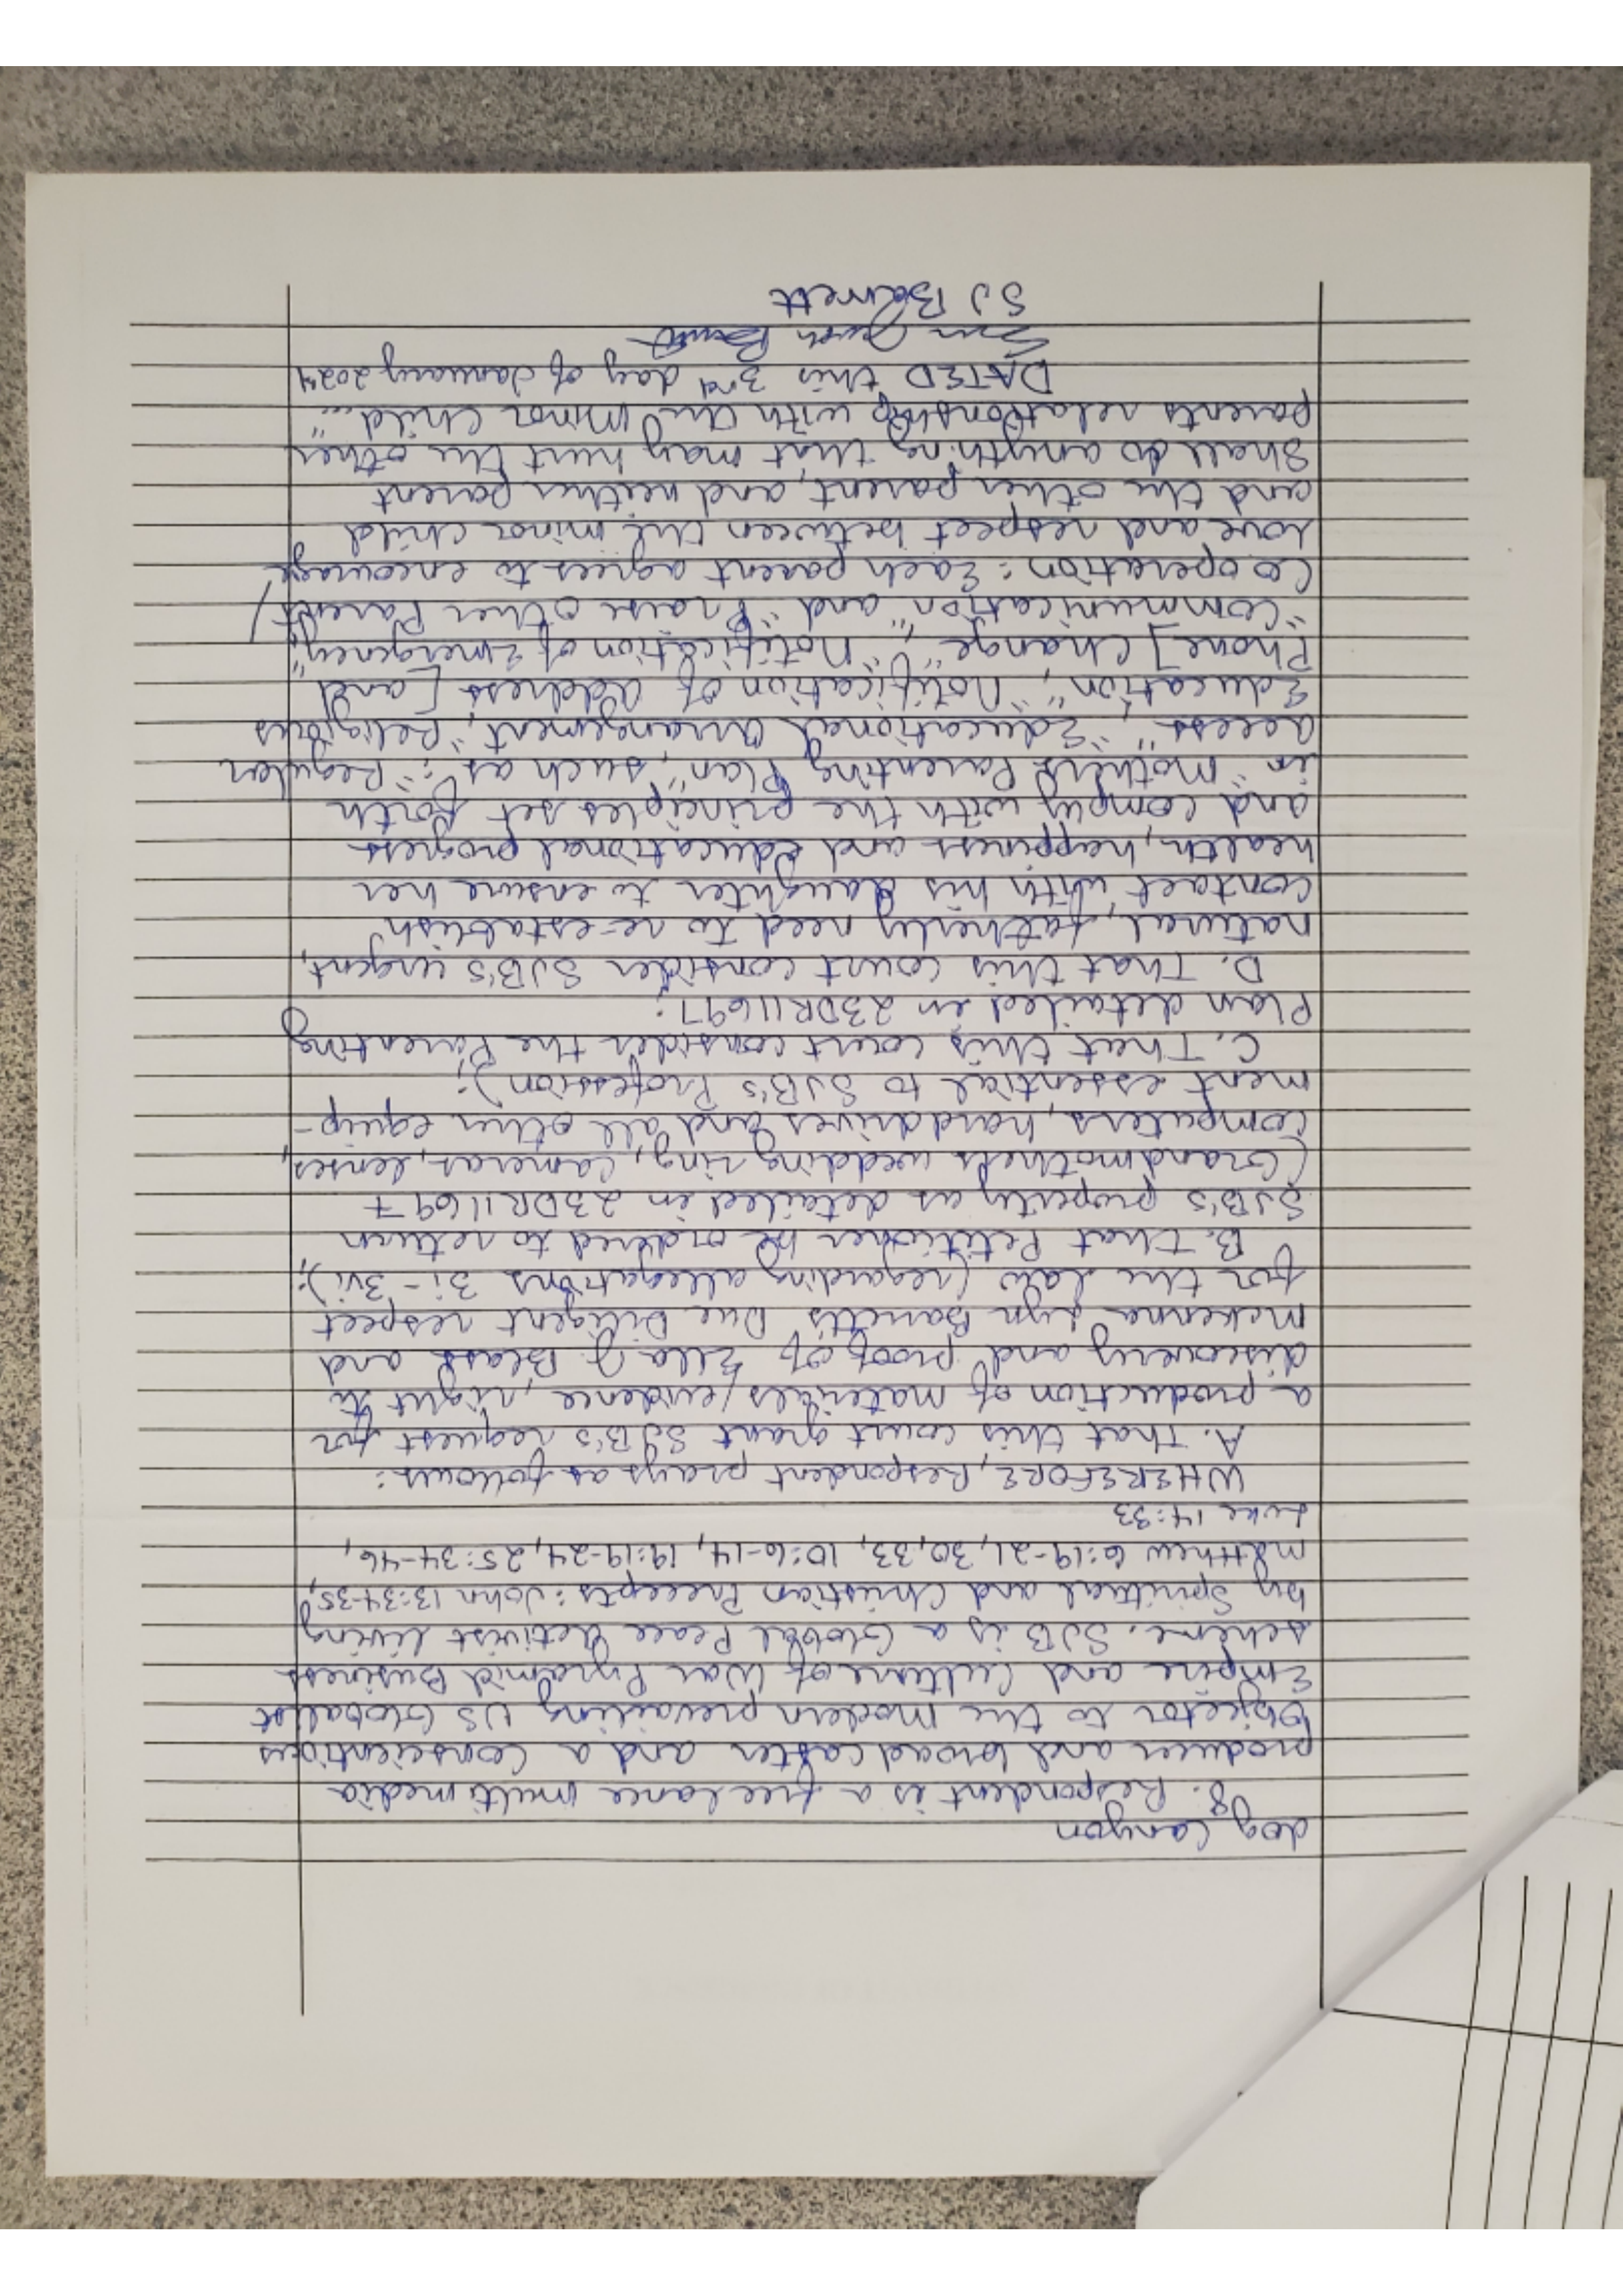 dog Canyon
8. Respondent is a free lance multi media
producer and broadcaster and a conscientious
objector to the modern prevailing US Globalist
Empire and Culture of War Pyramid Business
scheme. SJB is a Global Peace Activist Living
by Spiritual and Christian Precepts: John 13:34-35,
Matthew 6:19-21, 30,33, 10:6-14, 19:19-24, 25:34-46,
Luke 14:33
WHEREFORE, Respondent prays as follows:
A. That this court grant SJB's request for
a production of materials/evidence, right to
discovery and proof of Ella J Blask and
McKenna Lyn Barrett's Due Diligent respect
for the law (regarding allegations 3i-3vi);
B. That Petitioner be ordered to return
SJB's property as detailed in 23DR11697
(Grandmother's wedding ring, cameras, lenses,
computers, harddrives and all other equip-
ment essential to SJB's Profession);
C. That this court consider the Parenting
Plan detailed in 23DR11697;
D. That this court consider SJB's urgent,
natural, fatherly need to re-establish
contact with his daughter to ensure her
health, happiness and educational progress
and comply with the principles set forth
in "Mother's Parenting Plan", such as: "Regular
access", "Educational Arrangement", "Religious
Education", "Notification of address [and
Phone] Change", "Notification of Emergency",
"Communication" and "Praise Other Parent/
Cooperation: Each parent agrees to encourage
love and respect between the minor child
and the other parent, and neither parent
shall do anything that may hurt the other
parents relationship with the minor child..."
DATED this 3rd day of January 2024
SJ Barrett